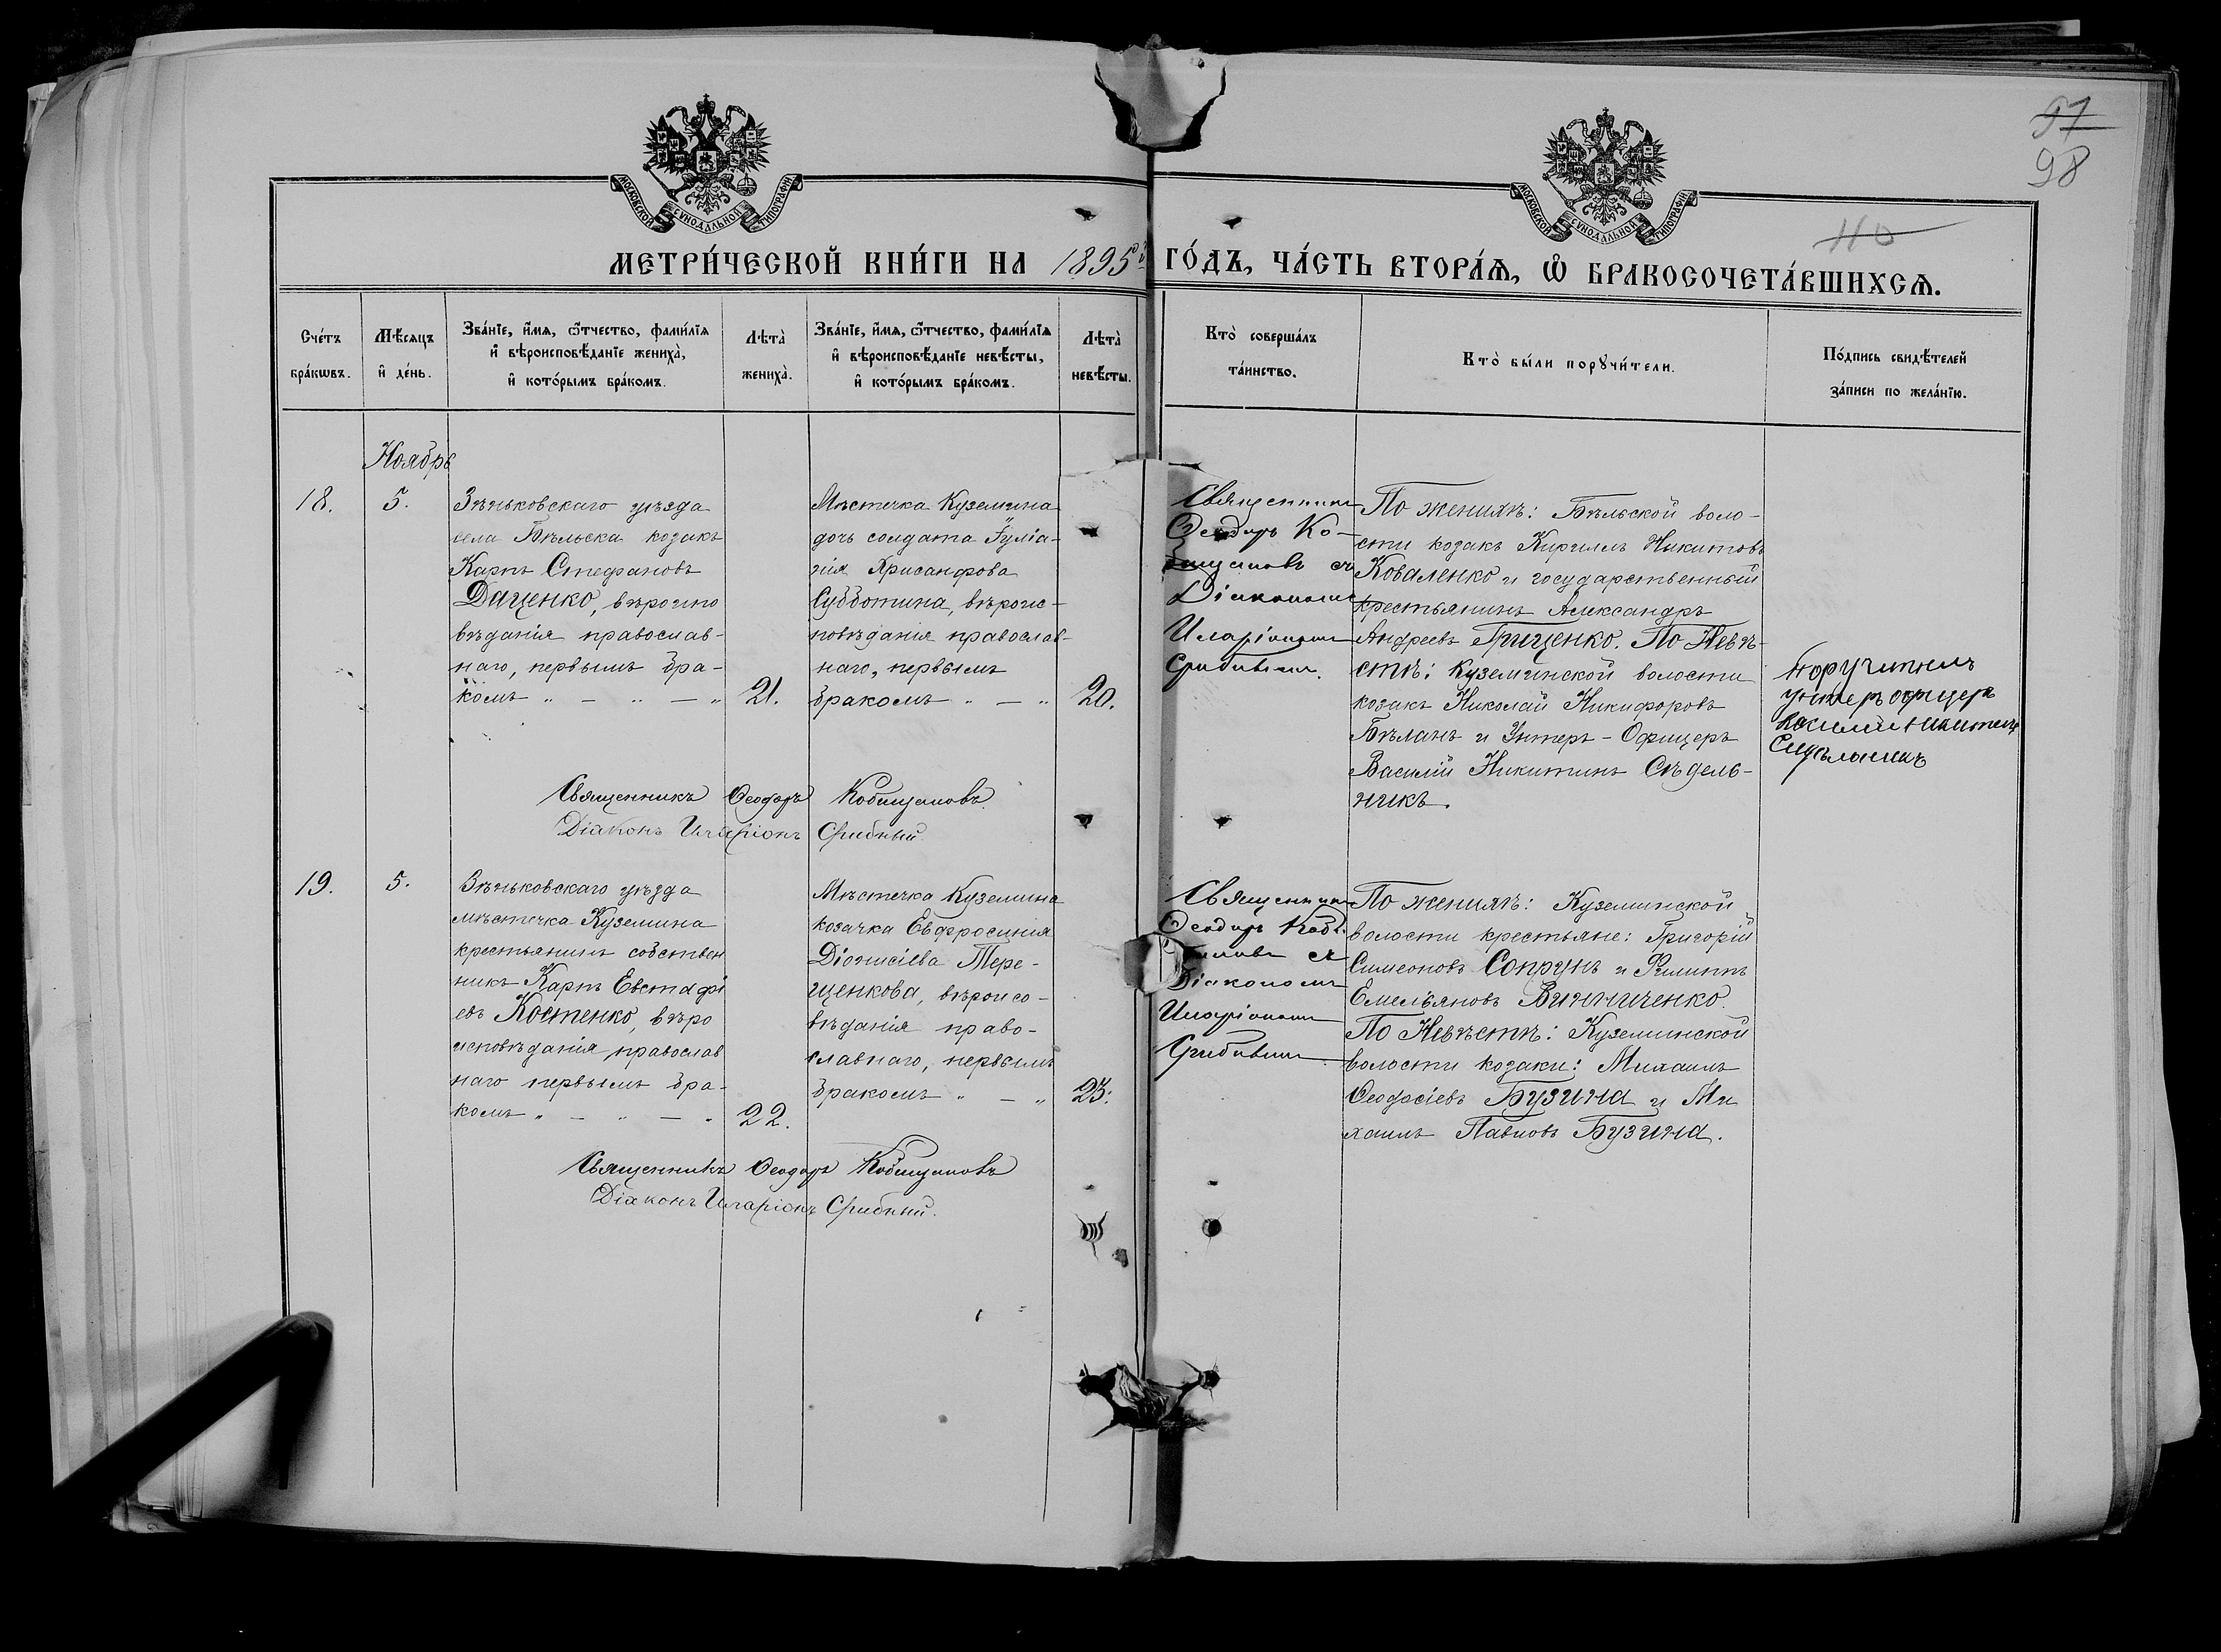 97
98
110
МОСКОВСКОЙ СѴНОДАЛЬНОЙ ТИПОГРАФІИ
МОСКОВСКОЙ СѴНОДАЛЬНОЙ ТИПОГРАФІИ
МЕТРИ́ЧЕСКОЙ КНИ́ГИ НА 1895й ГО́ДЪ, ЧА́СТЬ ВТОРА́Ѧ, Ѽ БРАКОСОЧЕТА́ВШИХСѦ.
Сче́тъ бра́кѡвъ.
Мѣ́сяцъ и҆ де́нь.
Зва́нїе, и҆́мя, ѻ҆́тчество, фами́лїя
и҆ вѣроисповѣ́данїе жениха̀,
и҆ кото́рымъ бра́комъ.
Лѣта̀ жениха̀.
Зва́нїе, и҆́мя, ѻ҆́тчество, фами́лїя
и҆ вѣроисповѣ́данїе невѣ́сты,
и҆ кото́рымъ бра́комъ.
Лѣта̀ невѣ́сты.
Кто̀ соверша́лъ
та́инство.
Кто̀ бы́ли порꙋчи́тели.
По́дпись свидѣ́телей
за́писи по жела́нію.
Ноябрь
18.
5.
Зѣньковскаго уѣзда
села Бѣльска козакъ
Карпъ Стефановъ
Даценко, вѣроипо
вѣданія православ-
наго, первымъ бра-
комъ " — " — "
21.
Мѣстечка Куземина
дочь солдата Іуліа-
нія Хрисанфова
Субботина, вѣроис-
повѣданія православ-
наго, первымъ
бракомъ " — "
20.
Священник
Ѳеодоръ Ко-
бищановъ съ
Діакономъ
Иларіономъ
Срибнымъ.
По женихѣ: Бѣльской воло-
сти козакъ Кириллъ Никитовъ
Коваленко и государственный
крестьянинъ Александръ
Андреевъ Грищенко. По Невѣ-
стѣ: Куземинской волости
козакъ Николай Никифоровъ
Бѣланъ и Унтеръ-Офицеръ
Василій Никитинъ Сѣдель-
никъ.
Поручитель
унтеръ офицеръ
Василий Никитинъ
Священникъ Ѳеодоръ Кобищановъ
Діаконъ Иларіонъ Срибный.
19.
5.
Зѣньковскаго уѣзда
мѣстечка Куземина
крестьянинъ собствен
никъ Карпъ Евстафі
евъ Костенко, вѣро
исповѣданія православ
наго первымъ бра-
комъ " — " — "
22.
Мѣстечка Куземина
козачка Евфросинія
Діонисіева Тере-
щенкова, вѣроисо-
вѣданія право-
славнаго, первымъ
бракомъ " — "
23.
Священник
Ѳеодоръ Коби
съ
Діакономъ
Иларіономъ
Срибнымъ.
По женихѣ: Куземинской
волости крестьяне: Григорій
Симеоновъ Сопрунъ и Филиппъ
Емельяновъ Винниченко.
По Невѣстѣ: Куземинской
волости козаки: Михаилъ
Ѳеодосіевъ Бузина и Ми
хаилъ Павловъ Бузина.
Священникъ Ѳеодоръ Кобищановъ
Діаконъ Иларіонъ Срибный.